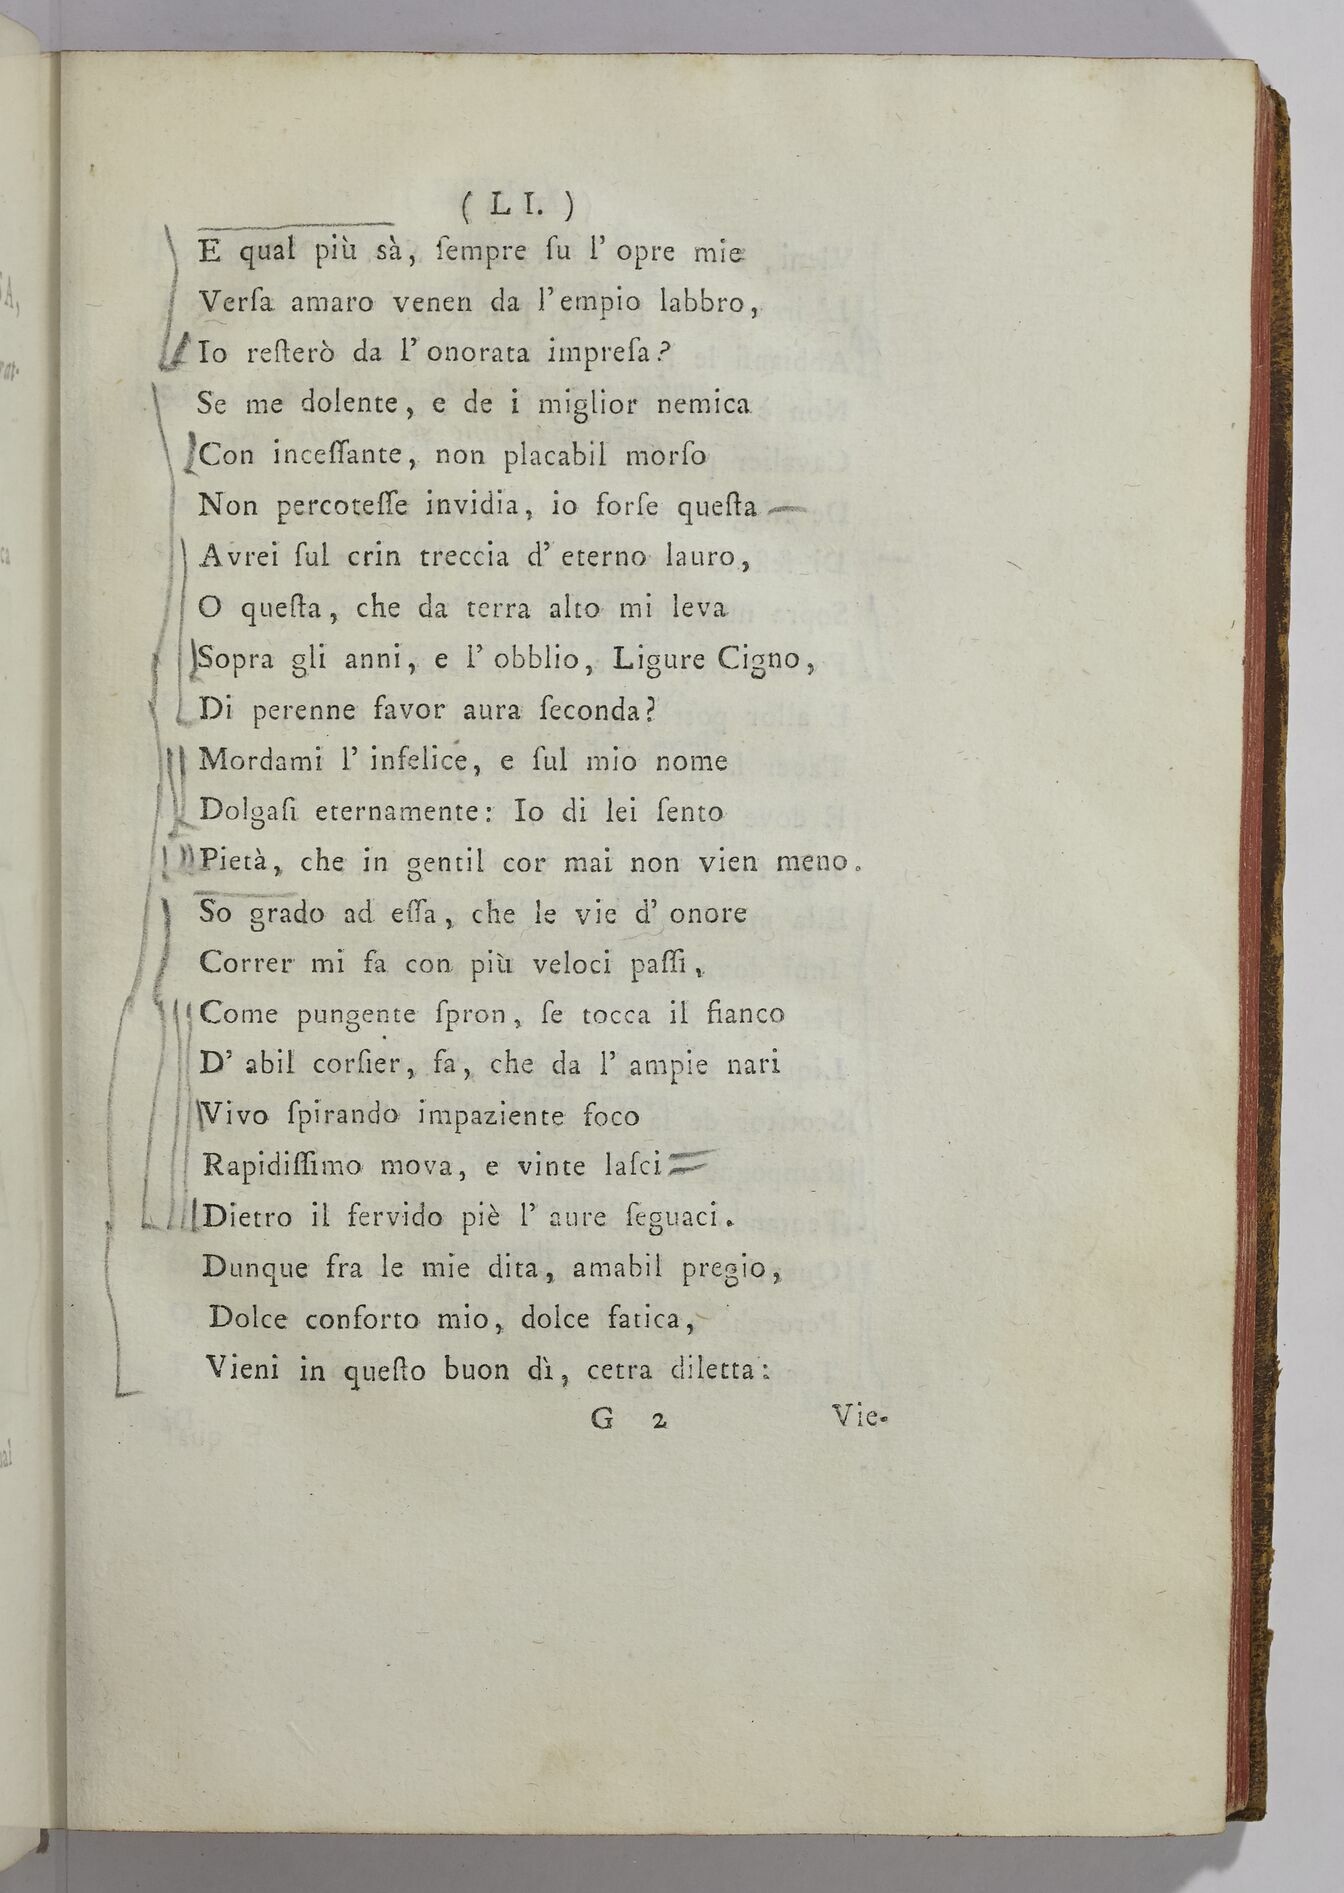 ( LI. )
E qual più sà, ſempre ſu l' opre mie
Verſa amaro venen da l' empio labbro,
Io reſterò da l' onorata impreſa?
Se me dolente, e de i miglior nemica
Con inceſſante, non placabil morſo
Non percoteſſe invidia, io forſe queſta
Avrei ſul crin treccia d' eterno lauro,
O queſta, che da terra alto mi leva
Sopra gli anni, e l' obblio, Ligure Cigno,
Di perenne favor aura ſeconda?
Mordami l' infelice, e ſul mio nome
Dolgaſi eternamente: Io di lei ſento
Pietà, che in gentil cor mai non vien meno.
So grado ad eſſa, che le vie d' onore
Correr mi fa con più veloci paſſi,
Come pungente ſpron, ſe tocca il fianco
D' abil corſier, fa, che da l' ampie nari
Vivo ſpirando impaziente foco
Rapidiſſimo mova, e vinte laſci
Dietro il fervido piè l' aure ſeguaci.
Dunque fra le mie dita, amabil pregio,
Dolce conforto mio, dolce fatica,
Vieni in queſto buon dì, cetra diletta:
G 2 Vie-